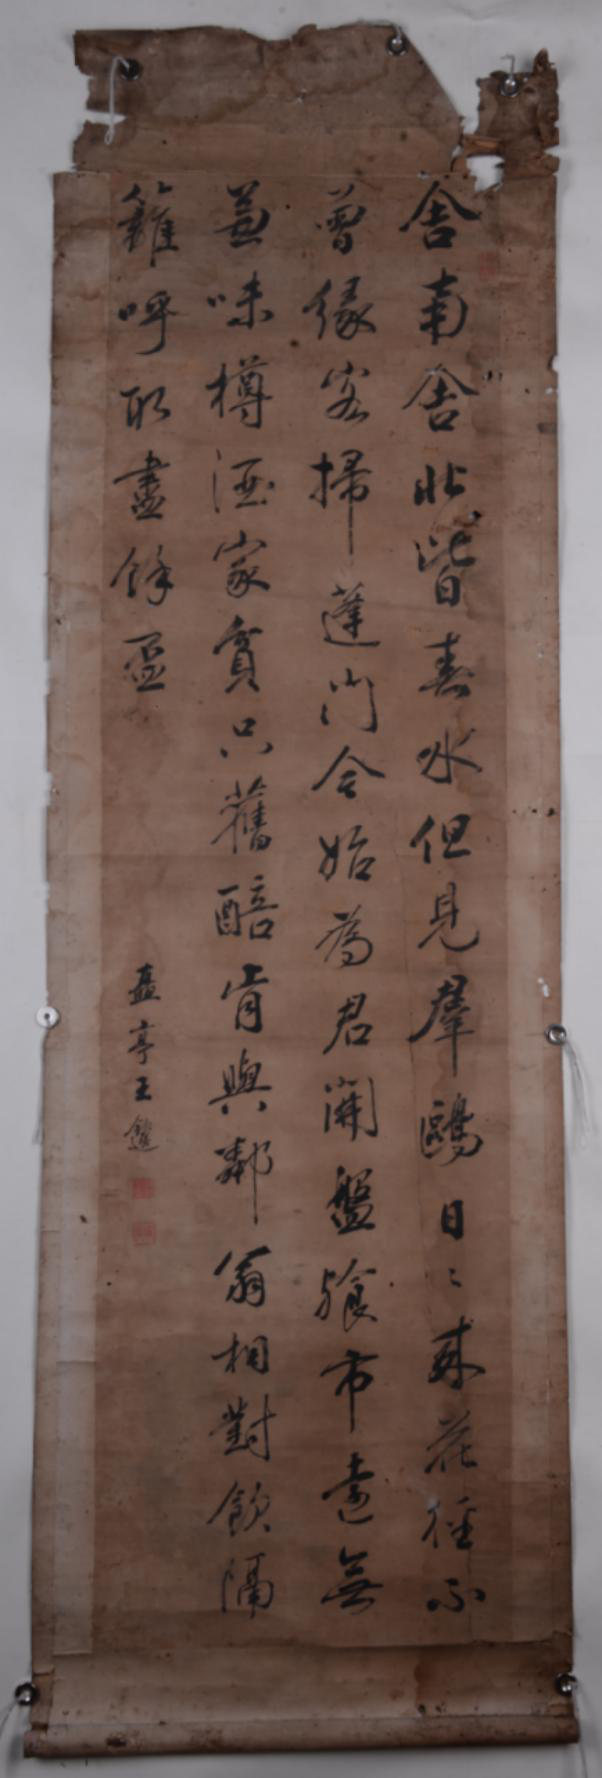 舍南舍北皆春水但見羣鷗日〻來花徑不
曾緣客掃蓬門今始為君開盤飱市遠無
兼味樽酒家貧只舊醅肯與鄰翁相對飲隔
籬呼取盡餘盃
亭王